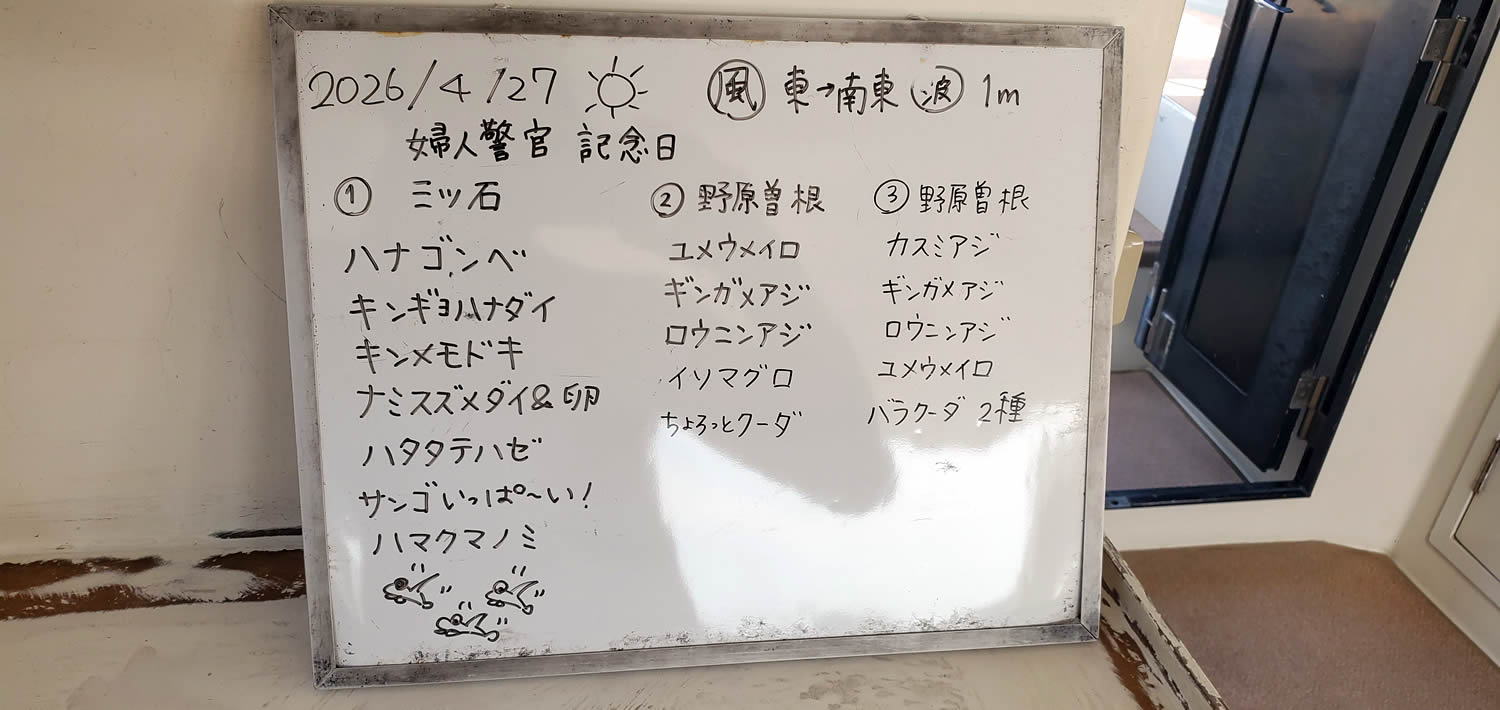 2026/4/27 風 東→南東 波 1m
婦人警官 記念日
① 三ツ石
ハナゴンベ
キンギョハナダイ
キンメモドキ
ナミスズメダイ&卵
ハタタテハゼ
サンゴいっぱ〜い!
ハマクマノミ
② 野原曽根
ユメウメイロ
ギンガメアジ
ロウニンアジ
イソマグロ
ちょろっとクーダ
③ 野原曽根
カスミアジ
ギンガメアジ
ロウニンアジ
ユメウメイロ
バラクーダ 2種